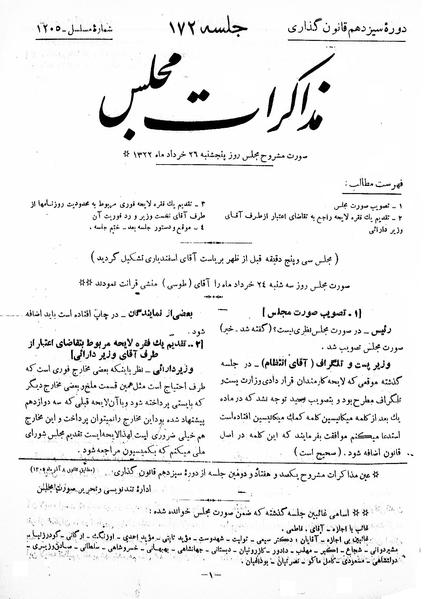 دورهٔ سیزدهم قانون گذاری
جلسه ۱۷۲
شمارهٔ مسلسل - ۱۲۰۵
مذاکرات مجلس
صورت مشروح مجلس روز پنجشنبه ۲۶ خرداد ماه ۱۳۲۲ *
فهرست مطالب:
۱ - تصویب صورت مجلس
۲ - تقدیم یك فقره لایحه راجع به تقاضای اعتبار ازطرف آقای
وزیر دارائی
۳ - تقدیم یك فقره لایحه فوری مربوط به محدودیت روزنامها از
طرف آقای نخست وزیر و رد فوریت آن
۴ - موقع و دستور جلسه بعد - ختم جلسه.
( مجلس سی و پنج دقیقه قبل از ظهر بریاست آقای اسفندیاری تشکیل گردید )
صورت مجلس روز سه شنبه ۲۴ خرداد ماه را آقای ( طوسی ) منشی قرائت نمودند *
[۱ - تصویب صورت مجلس]
رئیس - در صورت مجلس نظری نیست؟ (گفته شد - خیر)
صورت مجلس تصویب شد.
وزیر پست و تلگراف ( آقای اعتصام ) - در جلسه
گذشته موقعی که لایحه کارمندان قرار دادی وزارت پست و
تلگراف مطرح بود و بتصویب رسید توجه نشد که در ماده
یك بعد از کلمه میکانیسین کلمه کمك میکانیسین افتاده است
استدعا میکنم موافقت بفرمایند که این کلمه در اصل
قانون اضافه شود. ( صحیح است )
بعضی از نمایندگان - در چاپ افتاده است باید اضافه
شود.
[۲ - تقدیم یك فقره لایحه مربوط بتقاضای اعتبار از
طرف آقای وزیر دارائی]
وزیردارائی - نظر باینکه بعضی مخارج فوری است که
طرف احتیاج است مثل همین قسمت ملخ و بعضی مخارج دیگر
که بایستی پرداخته شود و با آن لایحه قبلی که سه دوازدهم
پیشنهاد شده بود این مخارج را نمیتوان پرداخت و این مخارج
هم خیلی ضروری است لهذا لایحه‌ایست تقدیم مجلس شورای
ملی میکنم که بکمیسیون مراجعه شود.
* عین مذاکرات مشروح یکصد و هفتاد و دومین جلسه از دورهٔ سیزدهم قانون گذاری.
اداره تندنویسی و تحریر صورت مجلس
* اسامی غائبین جلسه گذشته که ضمن صورت مجلس خوانده شده:
غائب با اجازه - آقای: فاطمی.
غائبین بی اجازه - آقایان: دکتر سمیعی - تولیت - شهدوست - مؤید ثابتی - مؤید احمدی - اوزنگ - ارگانی - گودرزنیا -
مشیردوانی - شجاع - اکبر - مهذب - دادور - کازرونیان - دبستانی - جهانشاهی - بهبهانی - خسروشاهی - سلطانی - صادق‌وزیری -
- ۱ -